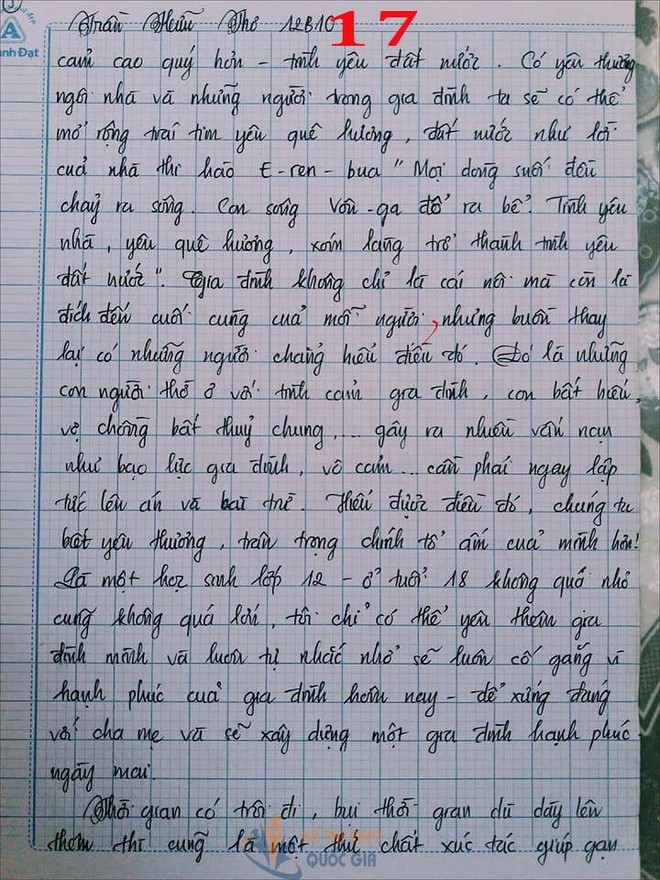 Trần Hữu Thơ 12B10 17
A
nh Đạt
cảm cao quý hơn – tình yêu đất nước. Có yêu thương
ngôi nhà và những người trong gia đình ta sẽ có thể
mở rộng trái tim yêu quê hương, đất nước như lời
của nhà thi hào E-ren-bua "Mọi dòng suối đều
chảy ra sông. Con sông Vôn-ga đổ ra bể. Tình yêu
nhà, yêu quê hương, xóm làng trở thành tình yêu
đất nước". Gia đình không chỉ là cái nôi mà còn là
đích đến cuối cùng của mỗi người, nhưng buồn thay
lại có những người chẳng hiểu điều đó. Đó là những
con người thờ ơ với tình cảm gia đình, con bất hiếu,
vợ chồng bất thuỷ chung,... gây ra nhiều vấn nạn
như bạo lực gia đình, vô cảm... cần phải ngay lập
tức lên án và bài trừ. Hiểu được điều đó, chúng ta
biết yêu thương, trân trọng chính tổ ấm của mình hơn!
Là một học sinh lớp 12 – ở tuổi 18 không quá nhỏ
cũng không quá lớn, tôi chỉ có thể yêu thêm gia
đình mình và luôn tự nhắc nhở sẽ luôn cố gắng vì
hạnh phúc của gia đình hôm nay – để xứng đáng
với cha mẹ và sẽ xây dựng một gia đình hạnh phúc
ngày mai.
Thời gian có trôi đi, bụi thời gian dù dày lên
thêm thì cũng là một thứ chất xúc tác giúp gạn
QUỐC GIA